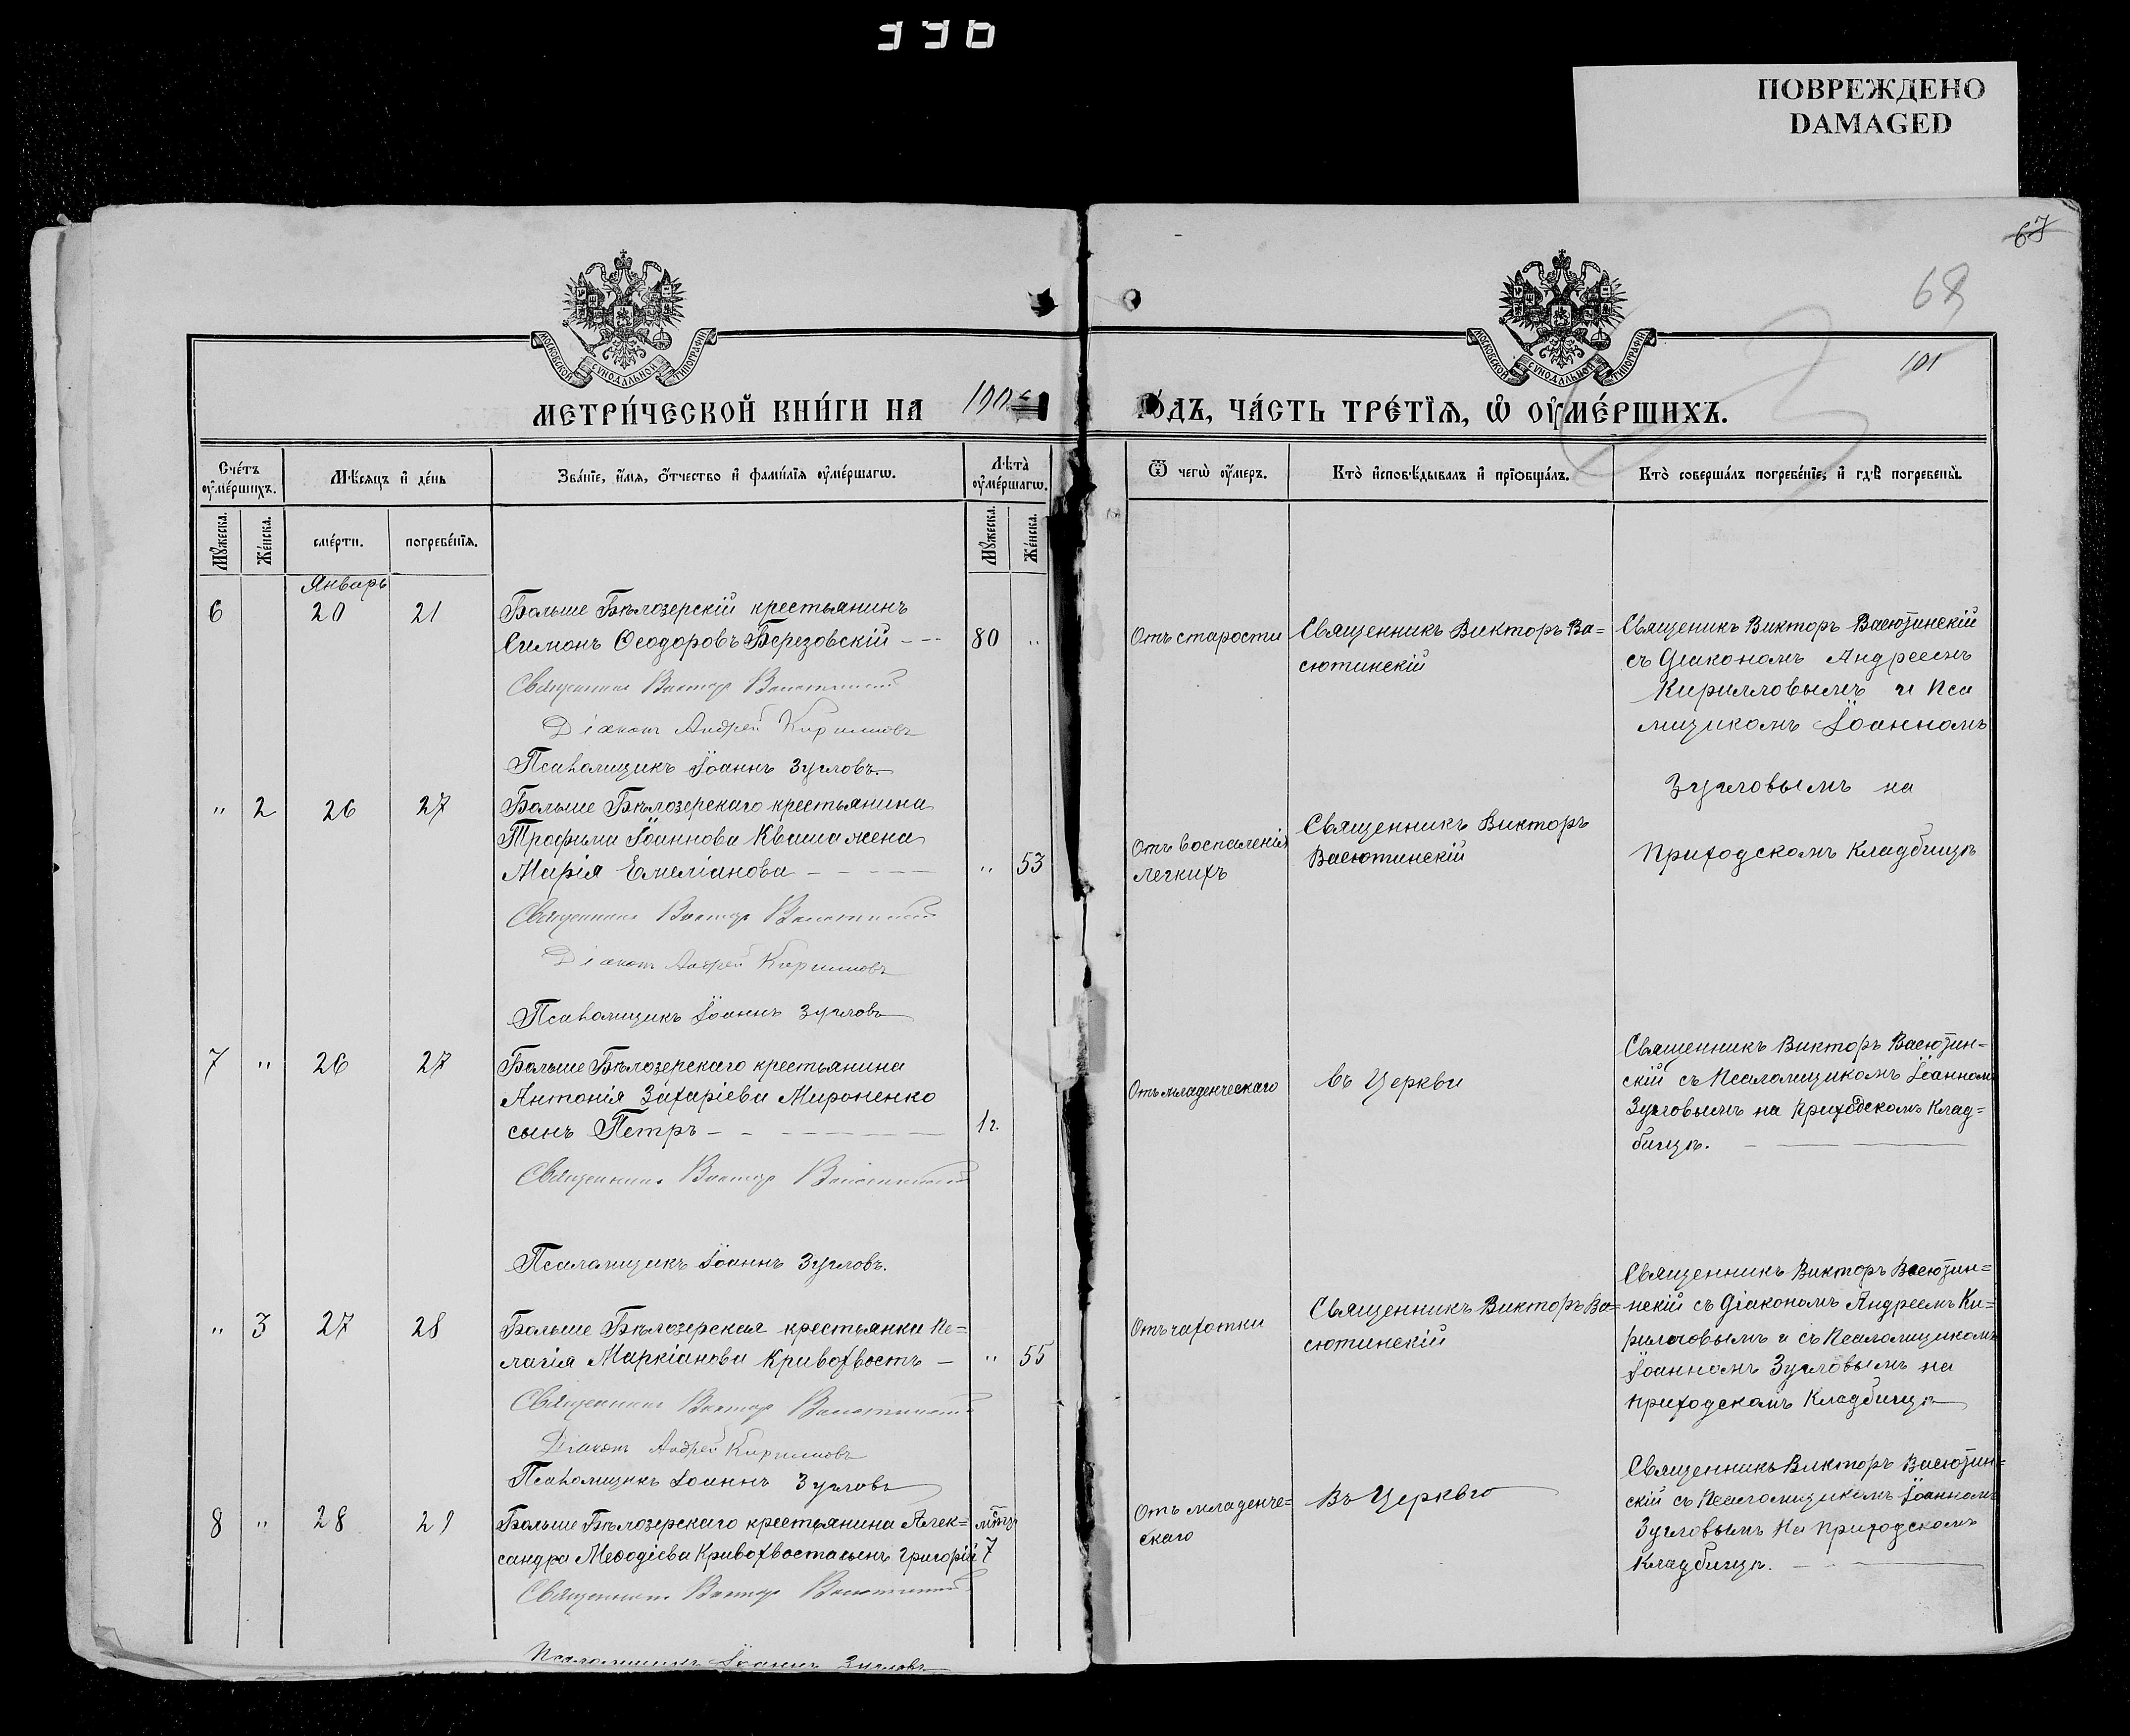 336
ПОВРЕЖДЕНО
DAMAGED
67
68
101
МОСКОВСКОЙ СУНОДАЛЬНОЙ ТИПОГРАФІИ
МОСКОВСКОЙ СУНОДАЛЬНОЙ ТИПОГРАФІИ
МЕТРИ́ЧЕСКОЙ КНИ́ГИ НА
ГО́ДЪ, ЧА́СТЬ ТРЕ́ТЇѦ, Ѡ҆ ОУ҆МЕ́РШИХЪ.
Сче́тъ оу҆ме́ршихъ.
Мѣ́сяцъ и҆ де́нь
Зва́нїе, и҆́мя, ѻ҆́тчество и҆ фами́лїя оу҆ме́ршагѡ.
Лѣта̀ оу҆ме́ршагѡ.
Ѿ чегѡ̀ оу҆́меръ.
Кто̀ и҆сповѣ́дывалъ и҆ прїѡбща́лъ.
Кто̀ соверша́лъ погребе́нїе, и҆ гдѣ̀ погребены̀.
Мꙋ́жеска.
Же́нска.
сме́рти.
погребе́нїѧ.
Мꙋ́жеска.
Же́нска.
Январь
6 20 21
Больше Бѣлозерскій крестьянинъ
Симонъ Ѳеодоровъ Березовскій - - - 80 "
Священникъ Викторъ Васютинскій
Діаконъ Андрей Кирилловъ
Псаломщикъ Іоаннъ Зугловъ.
Отъ старости
Священникъ Викторъ Ва=
сютинскій
Священикъ Викторъ Васютинскій
съ Діакономъ Андреемъ
Кирилловымъ и Пса
мщикомъ Іоанномъ
Зугловымъ на
Приходскомъ Кладбищѣ
" 2 26 27
Больше Бѣлозерскаго крестьянина
Трофима Іоаннова Кваша жена
Марія Емеліанова - - - - - " 53
Священникъ Викторъ Васютинскій
Діаконъ Андрей Кирилловъ
Псаломщикъ Іоаннъ Зугловъ
Отъ воспаленія
Легкихъ
Священникъ Викторъ
Васютинскій
7 " 26 27
Больше Бѣлозерскаго крестьянина
Антонія Захаріева Мироненко
сынъ Петръ - - - - - 1 г.
Священникъ Викторъ Васютинскій
Псаломщикъ Іоаннъ Зугловъ.
Отъ младенческаго
въ Церкви
Священникъ Викторъ Васютин=
скій съ Псаломщикомъ Іоанномъ
Зугловымъ на Приходскомъ Клад=
бищѣ.
" 3 27 28
Больше Бѣлозерская крестьянка Пе=
лагія Маркіанова Кривохвостъ - " 55
Священникъ Викторъ Васютинскій
Діаконъ Андрей Кирилловъ
Псаломщикъ Іоаннъ Зугловъ
Отъ чахотки
Священникъ Викторъ Ва=
сютинскій
Священникъ Викторъ Васютин=
нскій съ Діакономъ Андреемъ Ки=
рилловымъ и съ Псаломщикомъ
Іоанномъ Зугловымъ на
приходскомъ Кладбищѣ
8 " 28 29
Больше Бѣлозерскаго крестьянина Алек=
сандра Меѳодіева Кривохвоста сынъ Григорій 7
Священникъ Викторъ Васютинскій
Псаломщикъ Іоаннъ Зугловъ
Отъ младенче=
скаго
Въ Церквго
Священникъ Викторъ Васютин=
скій съ Псаломщикомъ Іоанномъ
Зугловымъ На приходскомъ
Кладбищѣ.